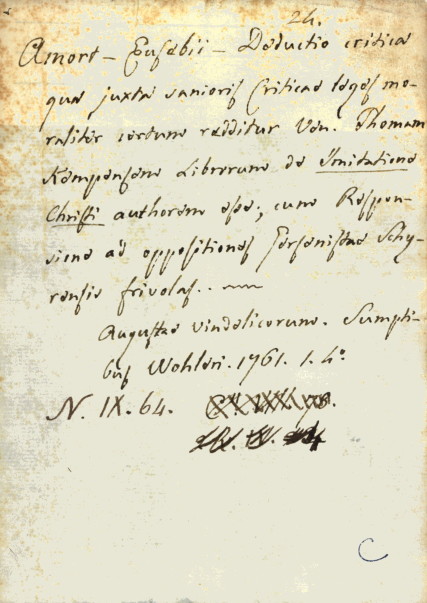 24.
Amort - Eusebii - Deductio critica
qua juxta sanioris Criticae leges mo-
raliter certum redditur Ven. Thomam
Kempensem Librorum de Imitatione
Christi authorem esse; cum Respon-
sione ad oppositiones Gersenistae Schy-
rensis frivolas..
Augustae Vindelicorum. Sumpti-
bus Wohleri. 1761. 1. 4º.
N. IX. 64.
C